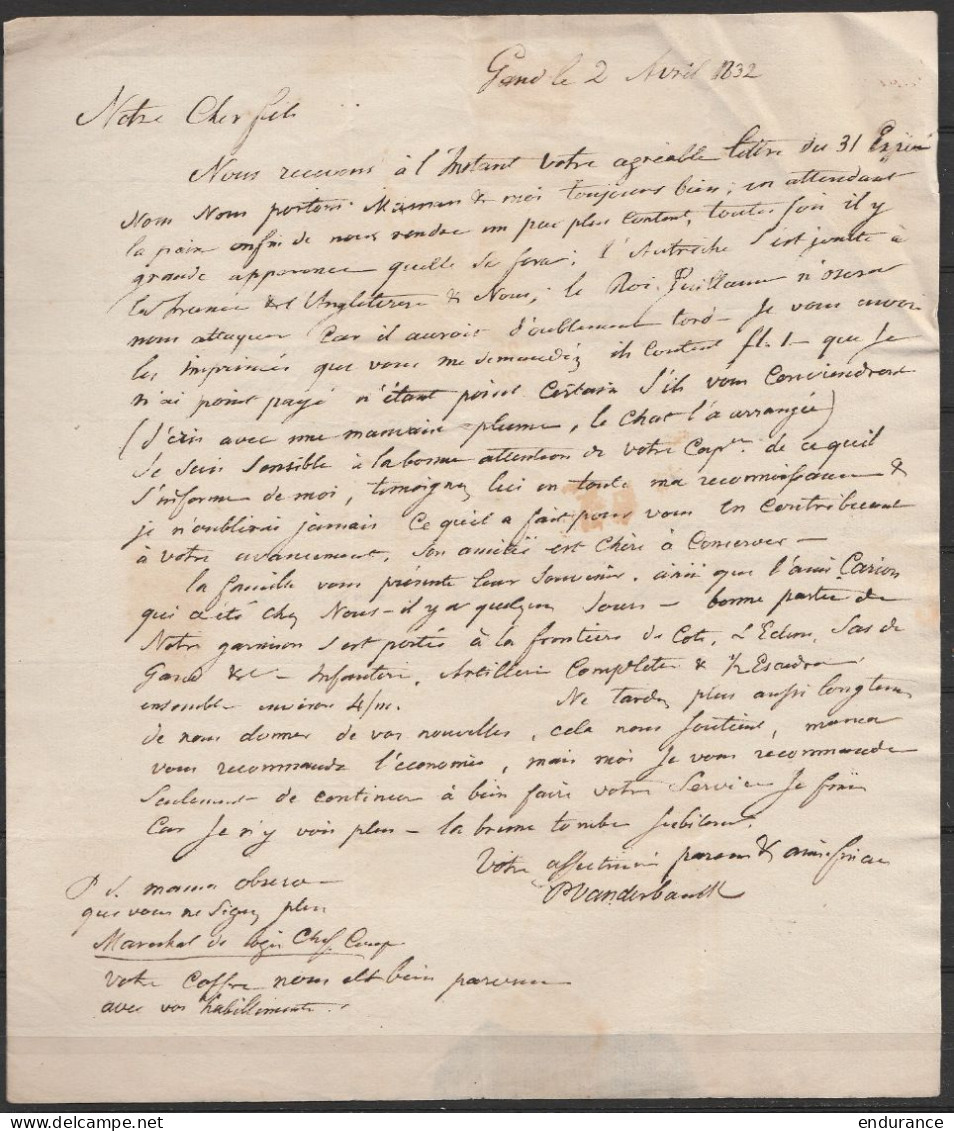 Gand le 2 Avril 1832
Notre Cher fils
Nous recevons à l'Instant votre agréable lettre du 31
Nous Nous portons Maman & moi toujours bien; en attendant
la paix enfin de nous rendre un peu plus Content, toutes fois il y
grande apparence quelle se fera; l'Autriche s'est jointe à
la France & l'Angleterre & Nous, le Roi Guillaume n'osera
nous attaquer Car il auroit doublement tord - Je vous envoi
les imprimés que vous me demandéz ils Coutent fl. 1 - que Je
n'ai point payé n'étant point Certain S'ils vous Conviendront
(J'écris avec une mauvaise plume, le Chat l'a arrangée)
Je suis Sensible à la bonne attention de votre Cap.ne de ce quil
s'informe de moi, temoignez lui en toute ma reconnoissance &
je n'oublirai jamais Ce qu'il a fait pour vous en Contribuant
à votre avancement, Son amitié est Chère à Conserver -
la famille vous présente leur Souvenir, ainsi que l'ami Carion
qui a été Chez Nous - il y a quelques Jours - bonne partie de
Notre garnison S'est portée à la frontière de Coté, L'Eclus, Sas de
Gand &c - Infanterie, Artillerie Complete & ½ Escadron
ensemble environ 4/m. Ne tardez plus aussi longtems
de nous donner de vos nouvelles, cela nous soutient, maman
vous recommande l'économie, mais moi Je vous recommande
Seulement de continuer à bien faire votre Service Je finis
Car Je n'y vois plus - la brune tombe
Votre affectionné parent &
PVanderbauck
P.S. maman observe
que vous ne Signez plus
Marechal de logis Chef
votre Coffre nous est bien parvenu
avec vos habillements.
endurance